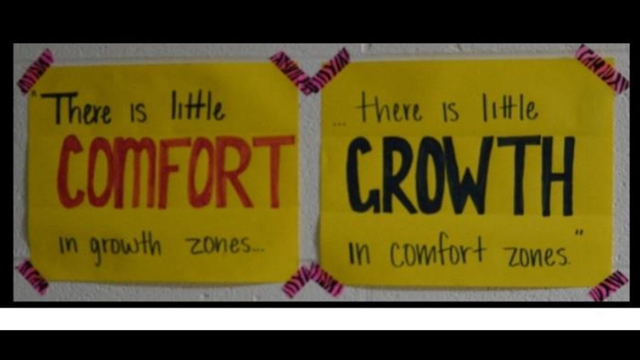 "There is little
COMFORT
in growth zones...
... there is little
GROWTH
in comfort zones."